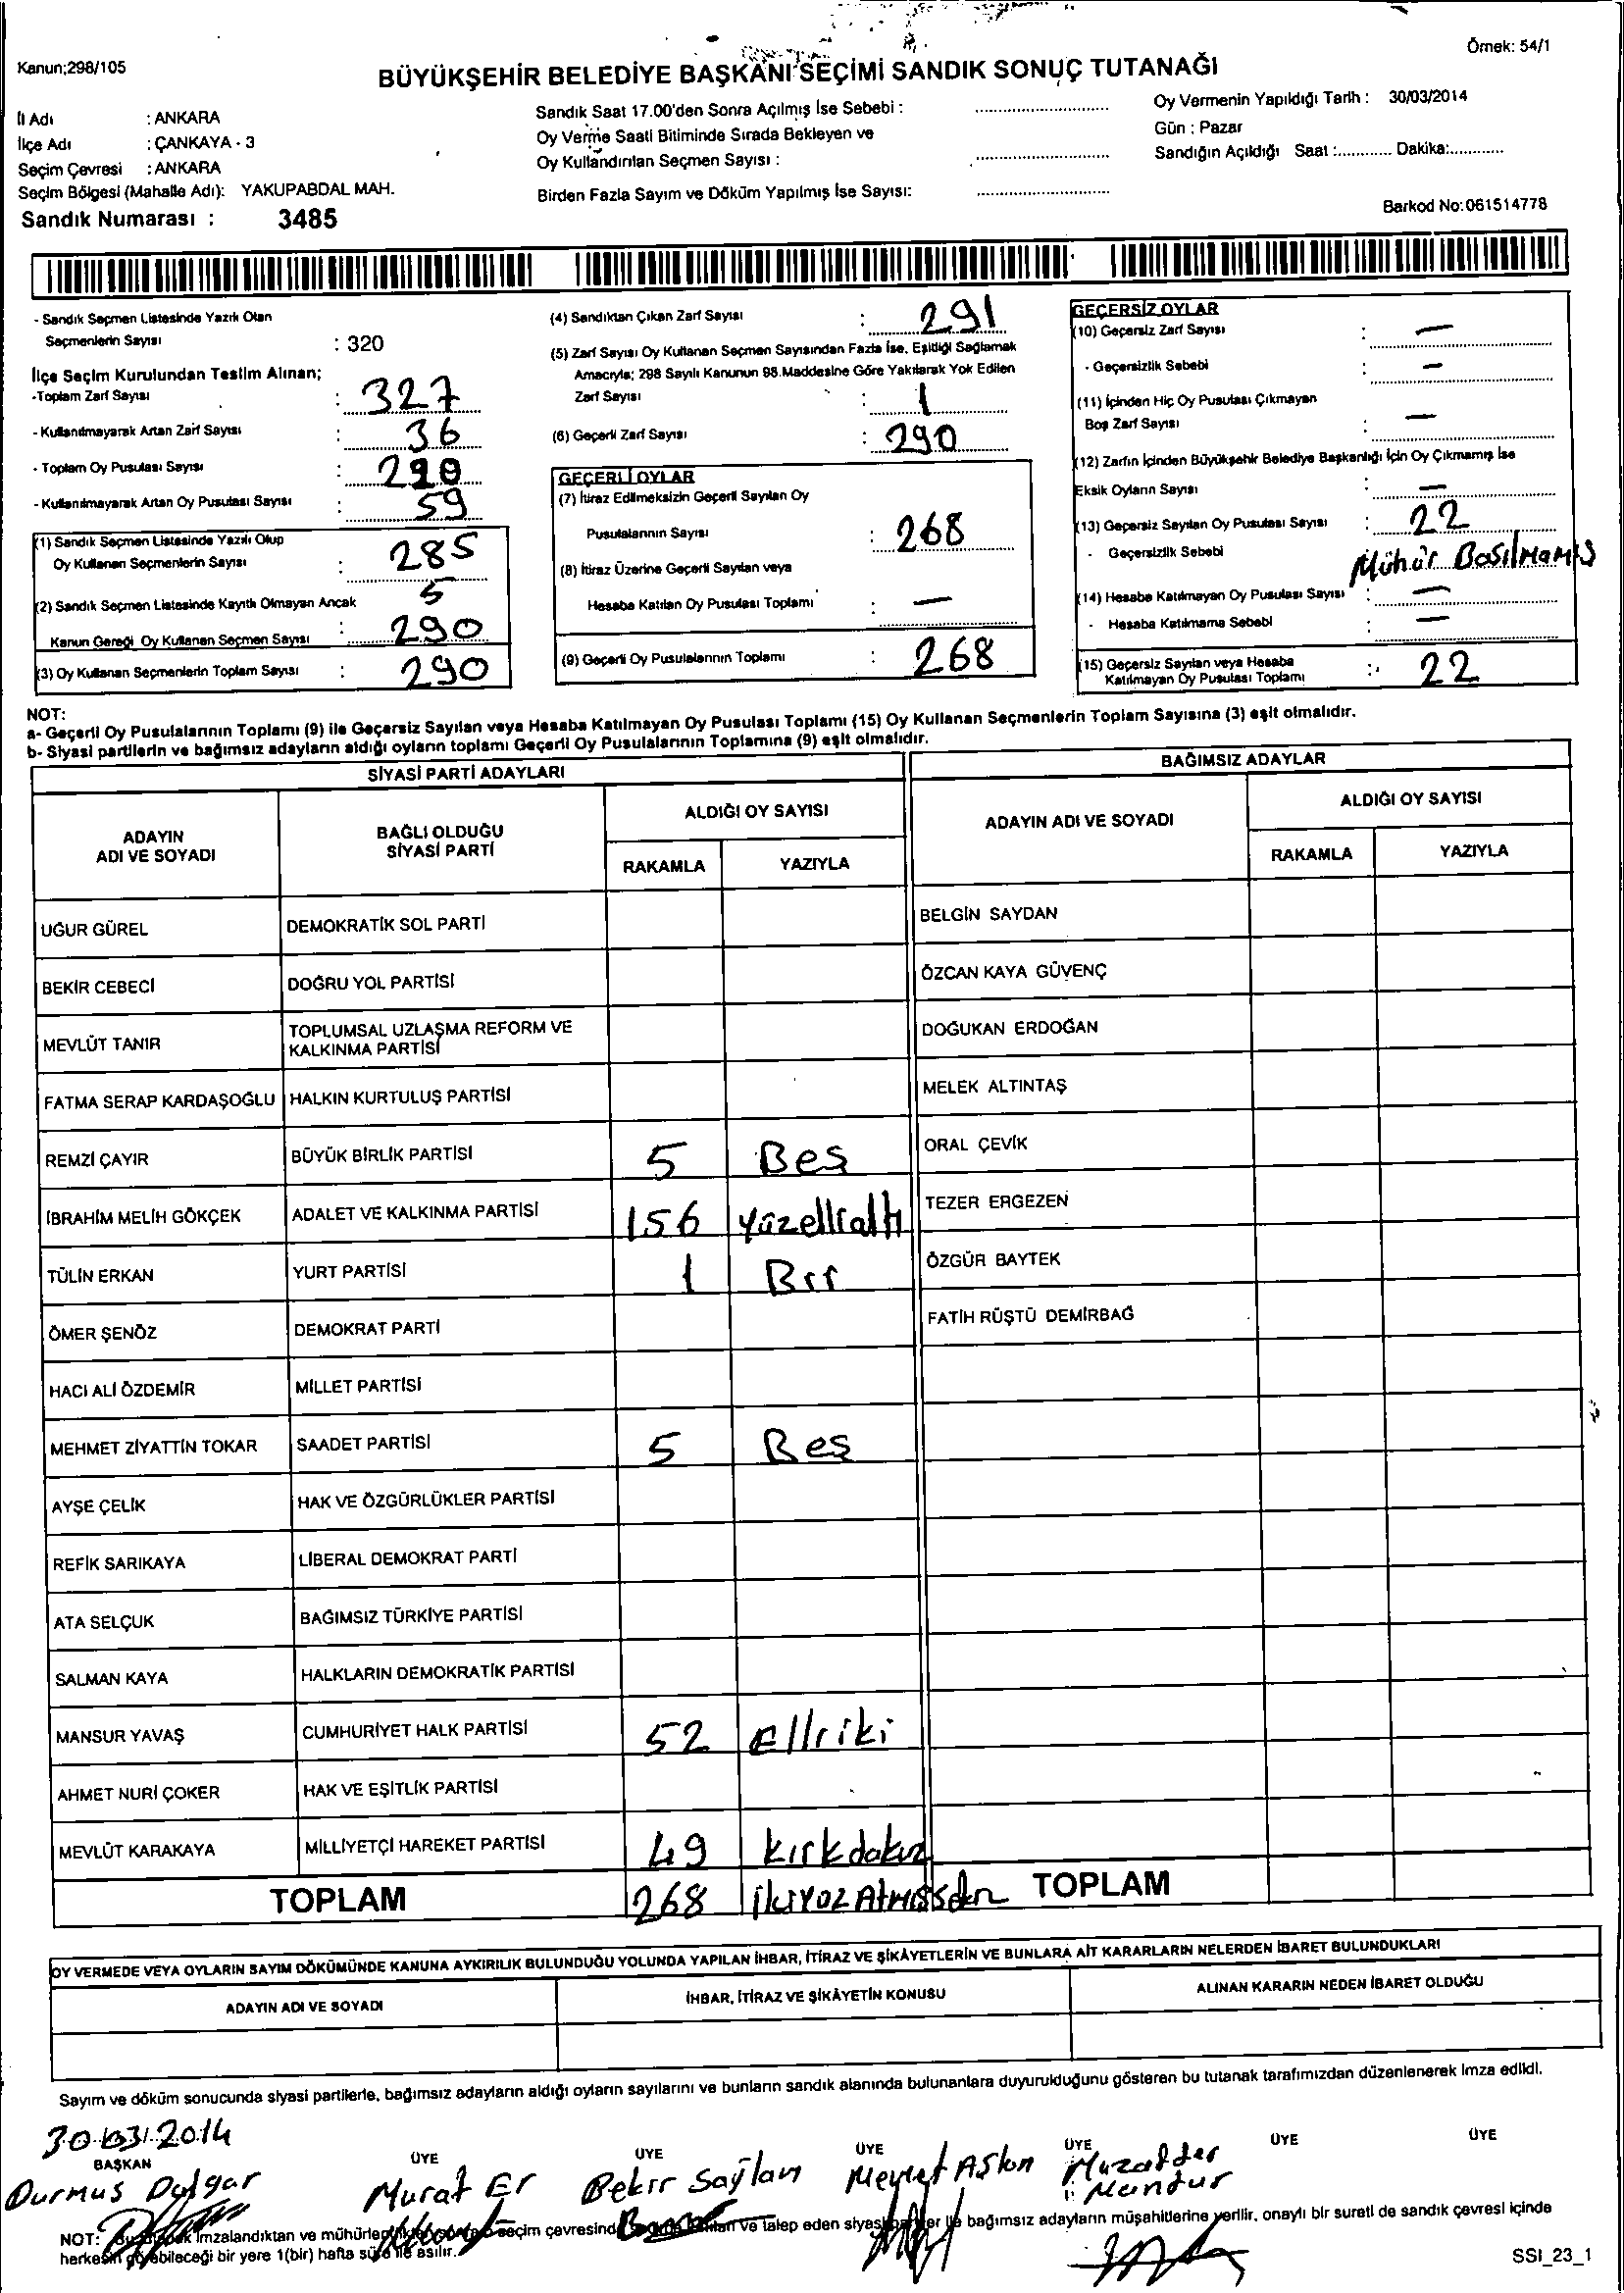 Kanun;298/105
Örnek: 54/1
BÜYÜKŞEHİR BELEDİYE BAŞKANI SEÇİMİ SANDIK SONUÇ TUTANAĞI
İl Adı : ANKARA
İlçe Adı : ÇANKAYA - 3
Seçim Çevresi : ANKARA
Seçim Bölgesi (Mahalle Adı): YAKUPABDAL MAH.
Sandık Numarası : 3485
Sandık Saat 17.00'den Sonra Açılmış İse Sebebi :
Oy Verme Saati Bitiminde Sırada Bekleyen ve
Oy Kullandırılan Seçmen Sayısı :
Birden Fazla Sayım ve Döküm Yapılmış İse Sayısı:
Oy Vermenin Yapıldığı Tarih : 30/03/2014
Gün : Pazar
Sandığın Açıldığı Saat :............ Dakika:............
Barkod No:061514778
- Sandık Seçmen Listesinde Yazılı Olan
Seçmenlerin Sayısı : 320
İlçe Seçim Kurulundan Teslim Alınan;
-Toplam Zarf Sayısı : 327
- Kullanılmayarak Artan Zarf Sayısı : 36
- Toplam Oy Pusulası Sayısı : 290
- Kullanılmayarak Artan Oy Pusulası Sayısı : 59
(1) Sandık Seçmen Listesinde Yazılı Olup
Oy Kullanan Seçmenlerin Sayısı : 285
(2) Sandık Seçmen Listesinde Kayıtlı Olmayan Ancak 5
Kanun Gereği Oy Kullanan Seçmen Sayısı : 290
(3) Oy Kullanan Seçmenlerin Toplam Sayısı : 290
(4) Sandıktan Çıkan Zarf Sayısı : 291
(5) Zarf Sayısı Oy Kullanan Seçmen Sayısından Fazla İse, Eşitliği Sağlamak
Amacıyla; 298 Sayılı Kanunun 98.Maddesine Göre Yakılarak Yok Edilen
Zarf Sayısı : 1
(6) Geçerli Zarf Sayısı : 290
GEÇERLİ OYLAR
(7) İtiraz Edilmeksizin Geçerli Sayılan Oy
Pusulalarının Sayısı : 268
(8) İtiraz Üzerine Geçerli Sayılan veya
Hesaba Katılan Oy Pusulası Toplamı : —
(9) Geçerli Oy Pusulalarının Toplamı : 268
GEÇERSİZ OYLAR
(10) Geçersiz Zarf Sayısı : —
- Geçersizlik Sebebi : —
(11) İçinden Hiç Oy Pusulası Çıkmayan
Boş Zarf Sayısı : —
(12) Zarfın İçinden Büyükşehir Belediye Başkanlığı İçin Oy Çıkmamış İse
Eksik Oyların Sayısı : —
(13) Geçersiz Sayılan Oy Pusulası Sayısı : 22
- Geçersizlik Sebebi Mühür Basılmamış
(14) Hesaba Katılmayan Oy Pusulası Sayısı : —
- Hesaba Katılmama Sebebi : —
(15) Geçersiz Sayılan veya Hesaba
Katılmayan Oy Pusulası Toplamı : 22
NOT:
a- Geçerli Oy Pusulalarının Toplamı (9) ile Geçersiz Sayılan veya Hesaba Katılmayan Oy Pusulası Toplamı (15) Oy Kullanan Seçmenlerin Toplam Sayısına (3) eşit olmalıdır.
b- Siyasi partilerin ve bağımsız adayların aldığı oyların toplamı Geçerli Oy Pusulalarının Toplamına (9) eşit olmalıdır.
SİYASİ PARTİ ADAYLARI
BAĞIMSIZ ADAYLAR
ADAYIN ADI VE SOYADI
BAĞLI OLDUĞU SİYASİ PARTİ
ALDIĞI OY SAYISI
RAKAMLA YAZIYLA
ADAYIN ADI VE SOYADI
ALDIĞI OY SAYISI
RAKAMLA YAZIYLA
UĞUR GÜREL DEMOKRATİK SOL PARTİ BELGİN SAYDAN
BEKİR CEBECİ DOĞRU YOL PARTİSİ ÖZCAN KAYA GÜVENÇ
MEVLÜT TANIR TOPLUMSAL UZLAŞMA REFORM VE KALKINMA PARTİSİ DOĞUKAN ERDOĞAN
FATMA SERAP KARDAŞOĞLU HALKIN KURTULUŞ PARTİSİ MELEK ALTINTAŞ
REMZİ ÇAYIR BÜYÜK BİRLİK PARTİSİ 5 Beş ORAL ÇEVİK
İBRAHİM MELİH GÖKÇEK ADALET VE KALKINMA PARTİSİ 156 yüzellialtı TEZER ERGEZEN
TÜLİN ERKAN YURT PARTİSİ 1 Bir ÖZGÜR BAYTEK
ÖMER ŞENÖZ DEMOKRAT PARTİ FATİH RÜŞTÜ DEMİRBAĞ
HACI ALİ ÖZDEMİR MİLLET PARTİSİ
MEHMET ZİYATTİN TOKAR SAADET PARTİSİ 5 Beş
AYŞE ÇELİK HAK VE ÖZGÜRLÜKLER PARTİSİ
REFİK SARIKAYA LİBERAL DEMOKRAT PARTİ
ATA SELÇUK BAĞIMSIZ TÜRKİYE PARTİSİ
SALMAN KAYA HALKLARIN DEMOKRATİK PARTİSİ
MANSUR YAVAŞ CUMHURİYET HALK PARTİSİ 52 Elliiki
AHMET NURİ ÇOKER HAK VE EŞİTLİK PARTİSİ
MEVLÜT KARAKAYA MİLLİYETÇİ HAREKET PARTİSİ 49 kırkdokuz
TOPLAM 268 TOPLAM
OY VERMEDE VEYA OYLARIN SAYIM DÖKÜMÜNDE KANUNA AYKIRILIK BULUNDUĞU YOLUNDA YAPILAN İHBAR, İTİRAZ VE ŞİKÂYETLERİN VE BUNLARA AİT KARARLARIN NELERDEN İBARET BULUNDUKLARI
ADAYIN ADI VE SOYADI İHBAR, İTİRAZ VE ŞİKÂYETİN KONUSU ALINAN KARARIN NEDEN İBARET OLDUĞU
Sayım ve döküm sonucunda siyasi partilerle, bağımsız adayların aldığı oyların sayılarını ve bunların sandık alanında bulunanlara duyurulduğunu gösteren bu tutanak tarafımızdan düzenlenerek imza edildi.
30/03/2014
BAŞKAN ÜYE ÜYE ÜYE ÜYE ÜYE ÜYE
Durmus Dalgar Murat Er Bekir Saylan Aslan Muzaffer
NOT: imzalandıktan ve seçim ve talep eden bağımsız adayların müşahitlerine verilir, onaylı bir sureti de sandık çevresi içinde
herkesin görebileceği bir yere 1(bir) hafta süre ile asılır.
SSI_23_1